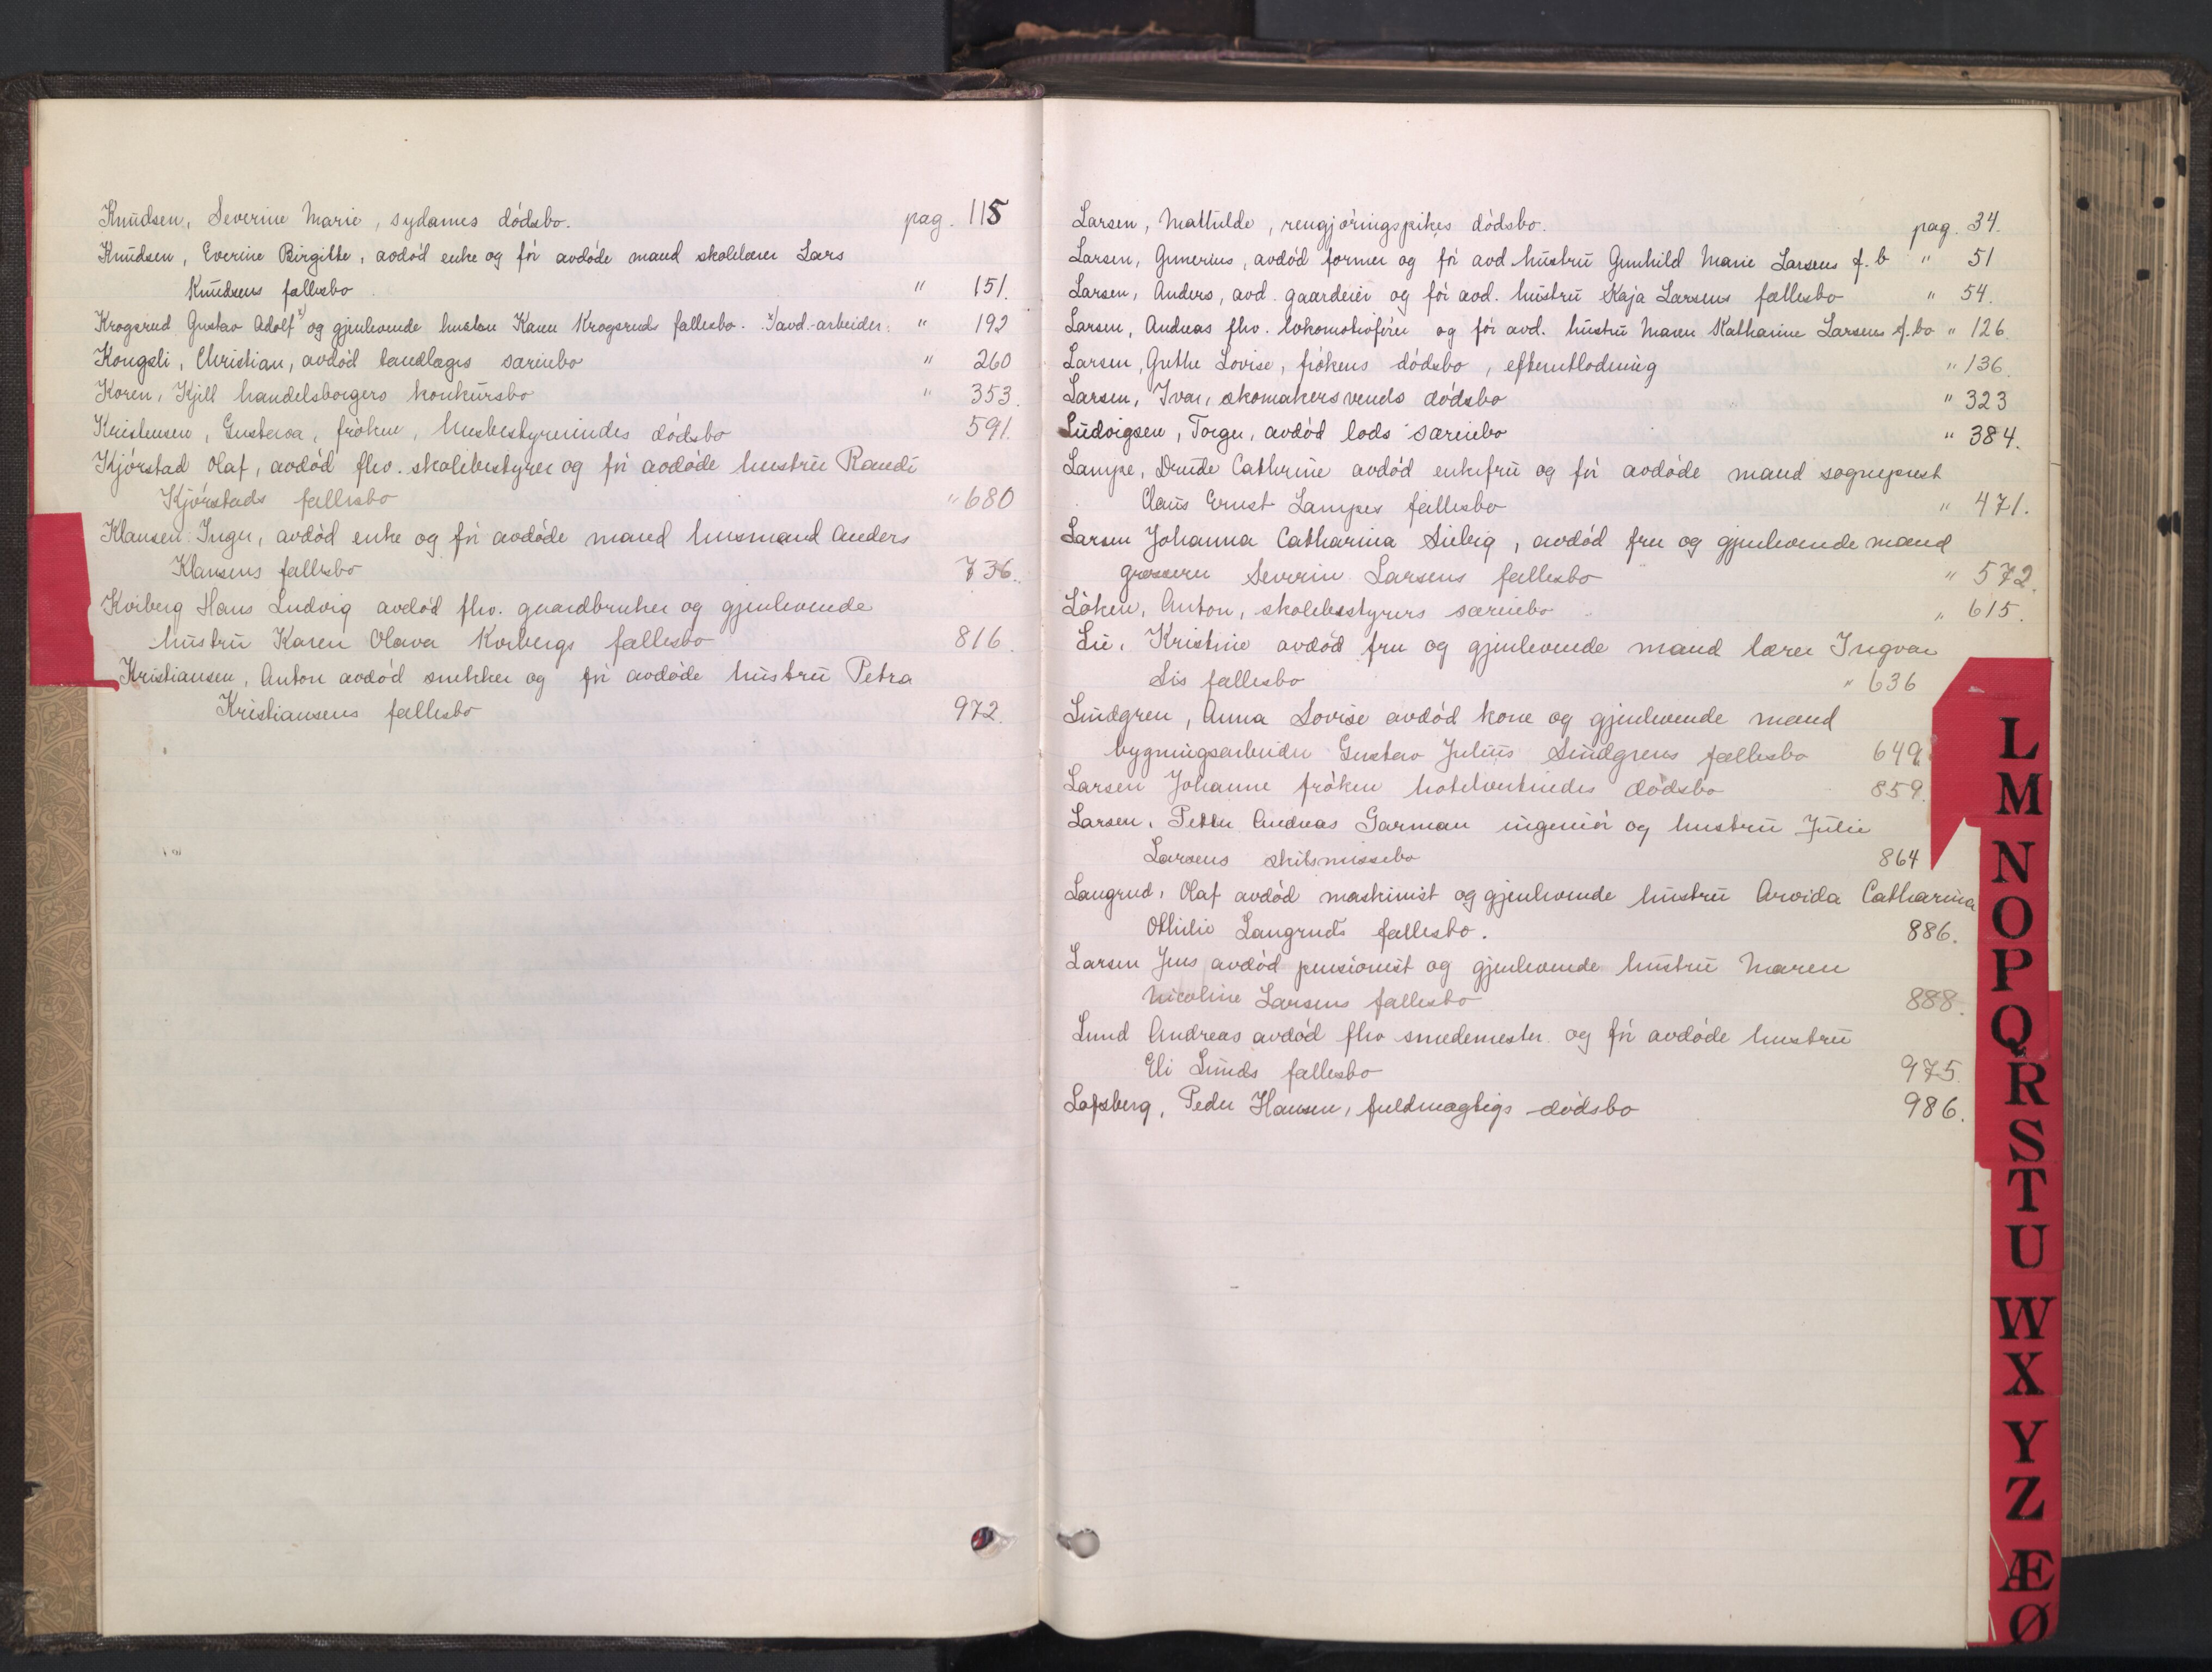 Knudsen, Severine Marie, sydames dödsbo. pag. 115
Knudsen, Everine Birgitte, avdöd enke og för avdöde mand skolelærer Lars
Knudsens fællesbo " 151.
Krogsrud Gustav Adolf x) og gjenlevende hustru Karen Krogsruds fællesbo. x) avd. arbeider. " 192
Kongsli, Christian, avdöd tandlæges særeiebo " 260
Koren, Kjell handelsborgers konkursbo " 353.
Kristensen, Gustava, fröken, husbestyrerindes dödsbo 591.
Kjörstad Olaf, avdöd fhv. skolebestyrer og för avdöde hustru Randi
Kjörstads fællesbo " 680
Klausen Inger, avdöd enke og för avdöde mand husmand Anders
Klausens fællesbo 736.
Kviberg Hans Ludvig avdöd fhv. gaardbruker og gjenlevende
hustru Karen Olava Kvibergs fællesbo 816.
Kristiansen, Anton avdöd snekker og för avdöde hustru Petra
Kristiansens fællesbo 972.
Larsen, Mathilde, rengjöringspikes dödsbo. pag. 34.
Larsen, Gunerius, avdöd former og för avd hustru Gunhild Marie Larsens f.b " 51
Larsen, Anders, avd. gaardeier og för avd. hustru Kaja Larsens fællesbo " 54.
Larsen, Andreas fhv. lokomotivförer og för avd. hustru Maren Katharine Larsens f.bo " 126.
Larsen, Grethe Lovise, frökens dödsbo, efterutlodning " 136.
Larsen, Ivar, skomakersvends dödsbo " 323
Ludvigsen, Torger, avdöd lods særeiebo " 384.
Lampe, Drude Cathrine avdöd enkefru og för avdöde mand sogneprest
Claus Ernst Lampes fællesbo " 471.
Larsen Johanna Catharina Siebig, avdöd fru og gjenlevende mand
grosserer Severin Larsens fællesbo " 572.
Löken, Anton, skolebestyrers særeiebo " 615.
Lie, Kristine avdöd fru og gjenlevende mand lærer Ingvar
Lis fællesbo " 636
Lindgren, Anna Lovise avdöd kone og gjenlevende mand
bygningsarbeider Gustav Julius Lindgrens fællesbo 649.
Larsen Johanne fröken hotelvertindes dödsbo 859.
Larsen, Petter Andreas Garman ingeniör og hustru Julie
Larsens skilsmissebo 864
Langrud, Olaf avdöd maskinist og gjenlevende hustru Arvida Catharina
Othilie Langruds fællesbo. 886.
Larsen Jens avdöd pensionist og gjenlevende hustru Maren
Nicoline Larsens fællesbo 888.
Lund Andreas avdöd fhv smedemester og för avdöde hustru
Eli Lunds fællesbo 975.
Lofsberg, Peder Hansen, fuldmægtigs dödsbo 986.
L
M
N
O
P
Q
R
S
T
U
W
X
Y
Z
Æ
Ø